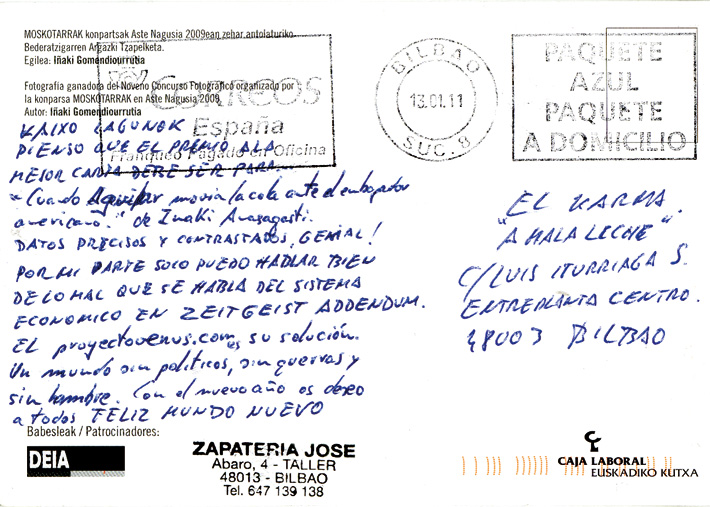 MOSKOTARRAK konpartsak Aste Nagusia 2009ean zehar antolaturiko
Bederatzigarren Argazki Tzapelketa.
Egilea: Iñaki Gomendiourrutia
Fotografía ganadora del Noveno Concurso Fotográfico organizado por
la konparsa MOSKOTARRAK en Aste Nagusia 2009.
Autor: Iñaki Gomendiourrutia
CORREOS
España
Franqueo Pagado en Oficina
BILBAO
13.01.11
SUC. 8
PAQUETE
AZUL
PAQUETE
A DOMICILIO
KAIXO LAGUNOK
PIENSO QUE EL PREMIO AL
MEJOR CARTA DEBE SER PARA...
"Cuando Aguilar movía la cola ante el embajador
americano." de Iñaki Anasagasti.
DATOS PRECISOS Y CONTRASTADOS, GENIAL!
POR MI PARTE SOLO PUEDO HABLAR BIEN
DE LO MAL QUE SE HABLA DEL SISTEMA
ECONOMICO EN ZEITGEIST ADDENDUM.
EL proyectovenus.com es su solución.
Un mundo sin políticos, sin guerras y
sin hambre. Con el nuevo año os deseo
a todos FELIZ MUNDO NUEVO
EL KARMA
"A MALA LECHE"
C/ LUIS ITURRIAGA S.
ENTREPLANTA CENTRO.
48003 BILBAO
Babesleak / Patrocinadores:
DEIA
ZAPATERIA JOSE
Abaro, 4 - TALLER
48013 - BILBAO
Tel. 647 139 138
CAJA LABORAL
EUSKADIKO KUTXA